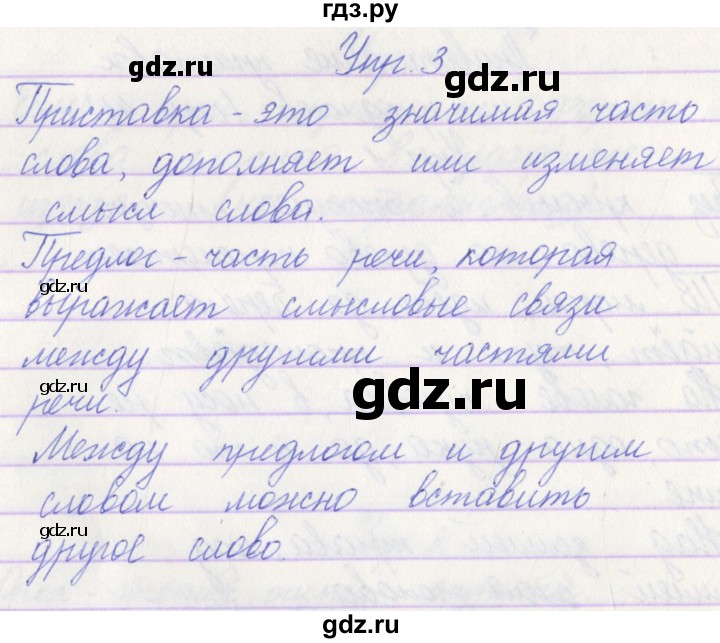 гдз.ру
gdz.ru
Упр. 3
gdz.ru
Приставка - это значимая часть
слова, дополняет или изменяет
gdz.ru
gdz.ru
смысл слова.
Предлог - часть речи, которая
gdz.ru
выражает смысловые связи
между другими частями
gdz.ru
gdz.ru
речи.
Между предлогом и другим
словом можно вставить
gdz.ru
gdz.ru
другое слово.
gdz.ru